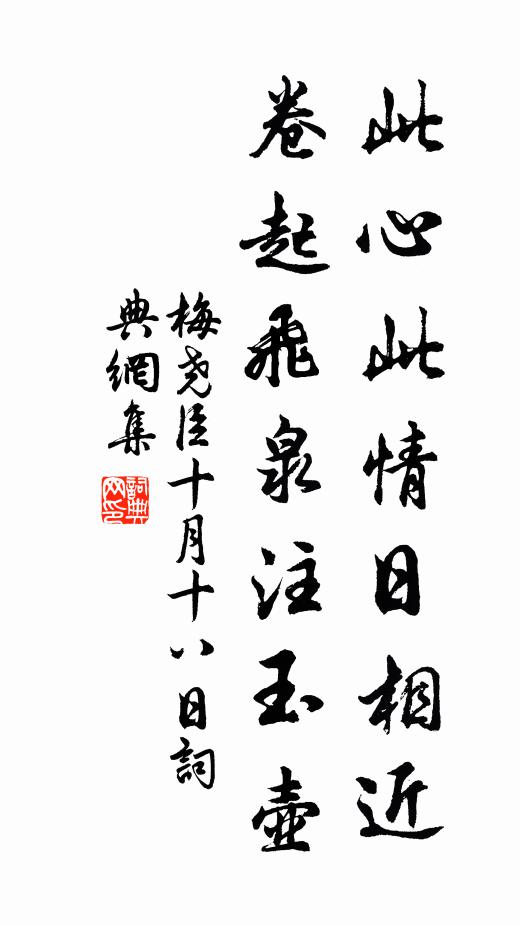 此心此情日相近
卷起飛泉注玉壺
梅堯臣十月十八日詞
典網集
詞典网印